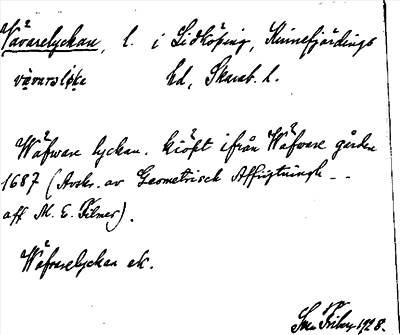 Vävarelyckan, l. i Lidköping, Kinnefjärdings
hd, Skarab. l.
Wäfware lyckan. kiöpt ifrån Wäfware gården
1687 (Avskr. av Geometrisk Affrijtningh --
aff M. E. Filmer).
Wäfvarelyckan ek.
1928.